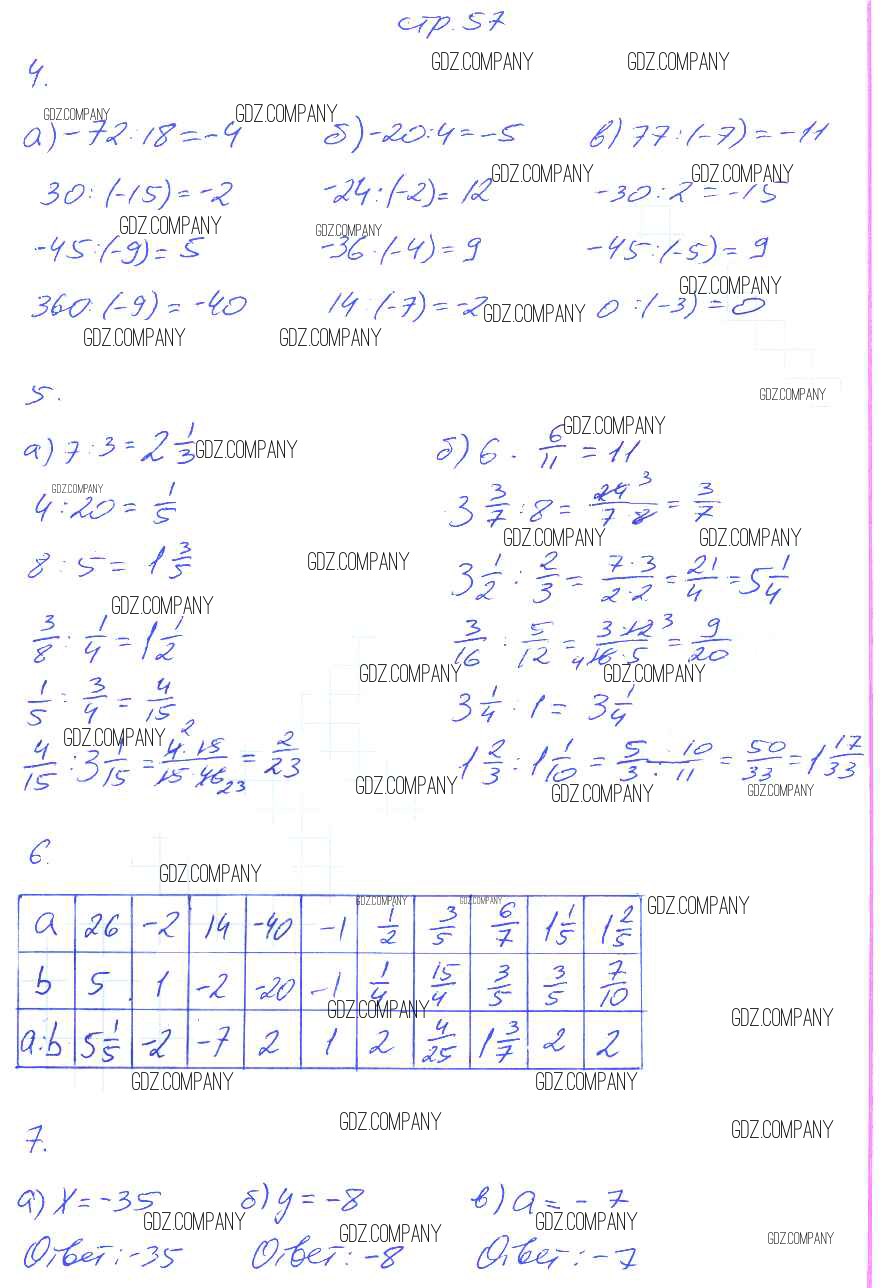 стр. 57
GDZ.COMPANY GDZ.COMPANY
4.
GDZ.COMPANY GDZ.COMPANY
а) -72:18=-4 б) -20:4=-5 в) 77:(-7)=-11
GDZ.COMPANY GDZ.COMPANY
30:(-15)=-2 -24:(-2)=12 -30:2=-15
GDZ.COMPANY GDZ.COMPANY
-45:(-9)=5 -36:(-4)=9 -45:(-5)=9
GDZ.COMPANY
360:(-9)=-40 14:(-7)=-2 0:(-3)=0
GDZ.COMPANY
GDZ.COMPANY GDZ.COMPANY
5.
GDZ.COMPANY
GDZ.COMPANY
а) 7:3=2 1/3 б) 6 · 6/11 = 11
GDZ.COMPANY
GDZ.COMPANY
4:20=1/5 3 3/7 : 8 = 24 3/7 8 = 3/7
GDZ.COMPANY GDZ.COMPANY
8:5=1 3/5 3 1/2 : 2/3 = 7·3/2·2 = 21/4 = 5 1/4
GDZ.COMPANY
GDZ.COMPANY
3/8 : 1/4 = 1 1/2 3/16 : 5/12 = 3·12 3/4 16·5 = 9/20
GDZ.COMPANY GDZ.COMPANY
1/5 : 3/4 = 4/15 3 1/4 : 1 = 3 1/4
GDZ.COMPANY
4/15 : 3 1/15 = 4·15 2/15 46 23 = 2/23 1 2/3 : 1 1/10 = 5·10/3·11 = 50/33 = 1 17/33
GDZ.COMPANY GDZ.COMPANY GDZ.COMPANY
6.
GDZ.COMPANY
GDZ.COMPANY GDZ.COMPANY GDZ.COMPANY
a 26 -2 14 -40 -1 1/2 3/5 6/7 1 1/5 1 2/5
b 5 1 -2 -20 -1 1/4 15/4 3/5 3/5 7/10
GDZ.COMPANY GDZ.COMPANY
a:b 5 1/5 -2 -7 2 1 2 4/25 1 3/7 2 2
GDZ.COMPANY GDZ.COMPANY
GDZ.COMPANY GDZ.COMPANY
7.
а) x=-35 б) y=-8 в) a=-7
GDZ.COMPANY GDZ.COMPANY GDZ.COMPANY GDZ.COMPANY
Ответ: -35 Ответ: -8 Ответ: -7